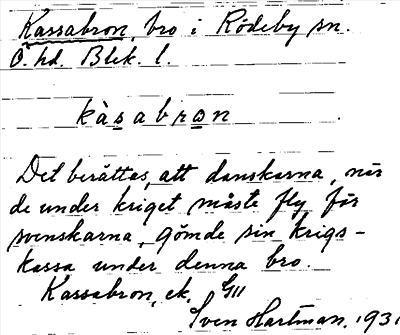 Kassabron, bro i Rödeby sn.
Ö. hd. Blek. l.
kàsabron
Det berättas, att danskarna, när
de under kriget måste fly för
svenskarna, gömde sin krigs-
kassa under denna bro.
Kassabron, ek. G111
Sven Hartman, 1931